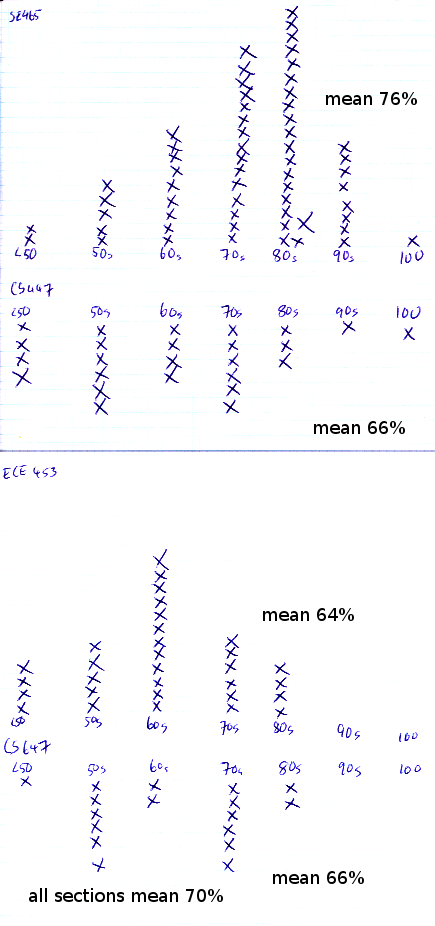 SE465
mean 76%
<50 50s 60s 70s 80s 90s 100
CS447
<50 50s 60s 70s 80s 90s 100
mean 66%
ECE 453
mean 64%
<50 50s 60s 70s 80s 90s 100
CS647
<50 50s 60s 70s 80s 90s 100
mean 66%
all sections mean 70%